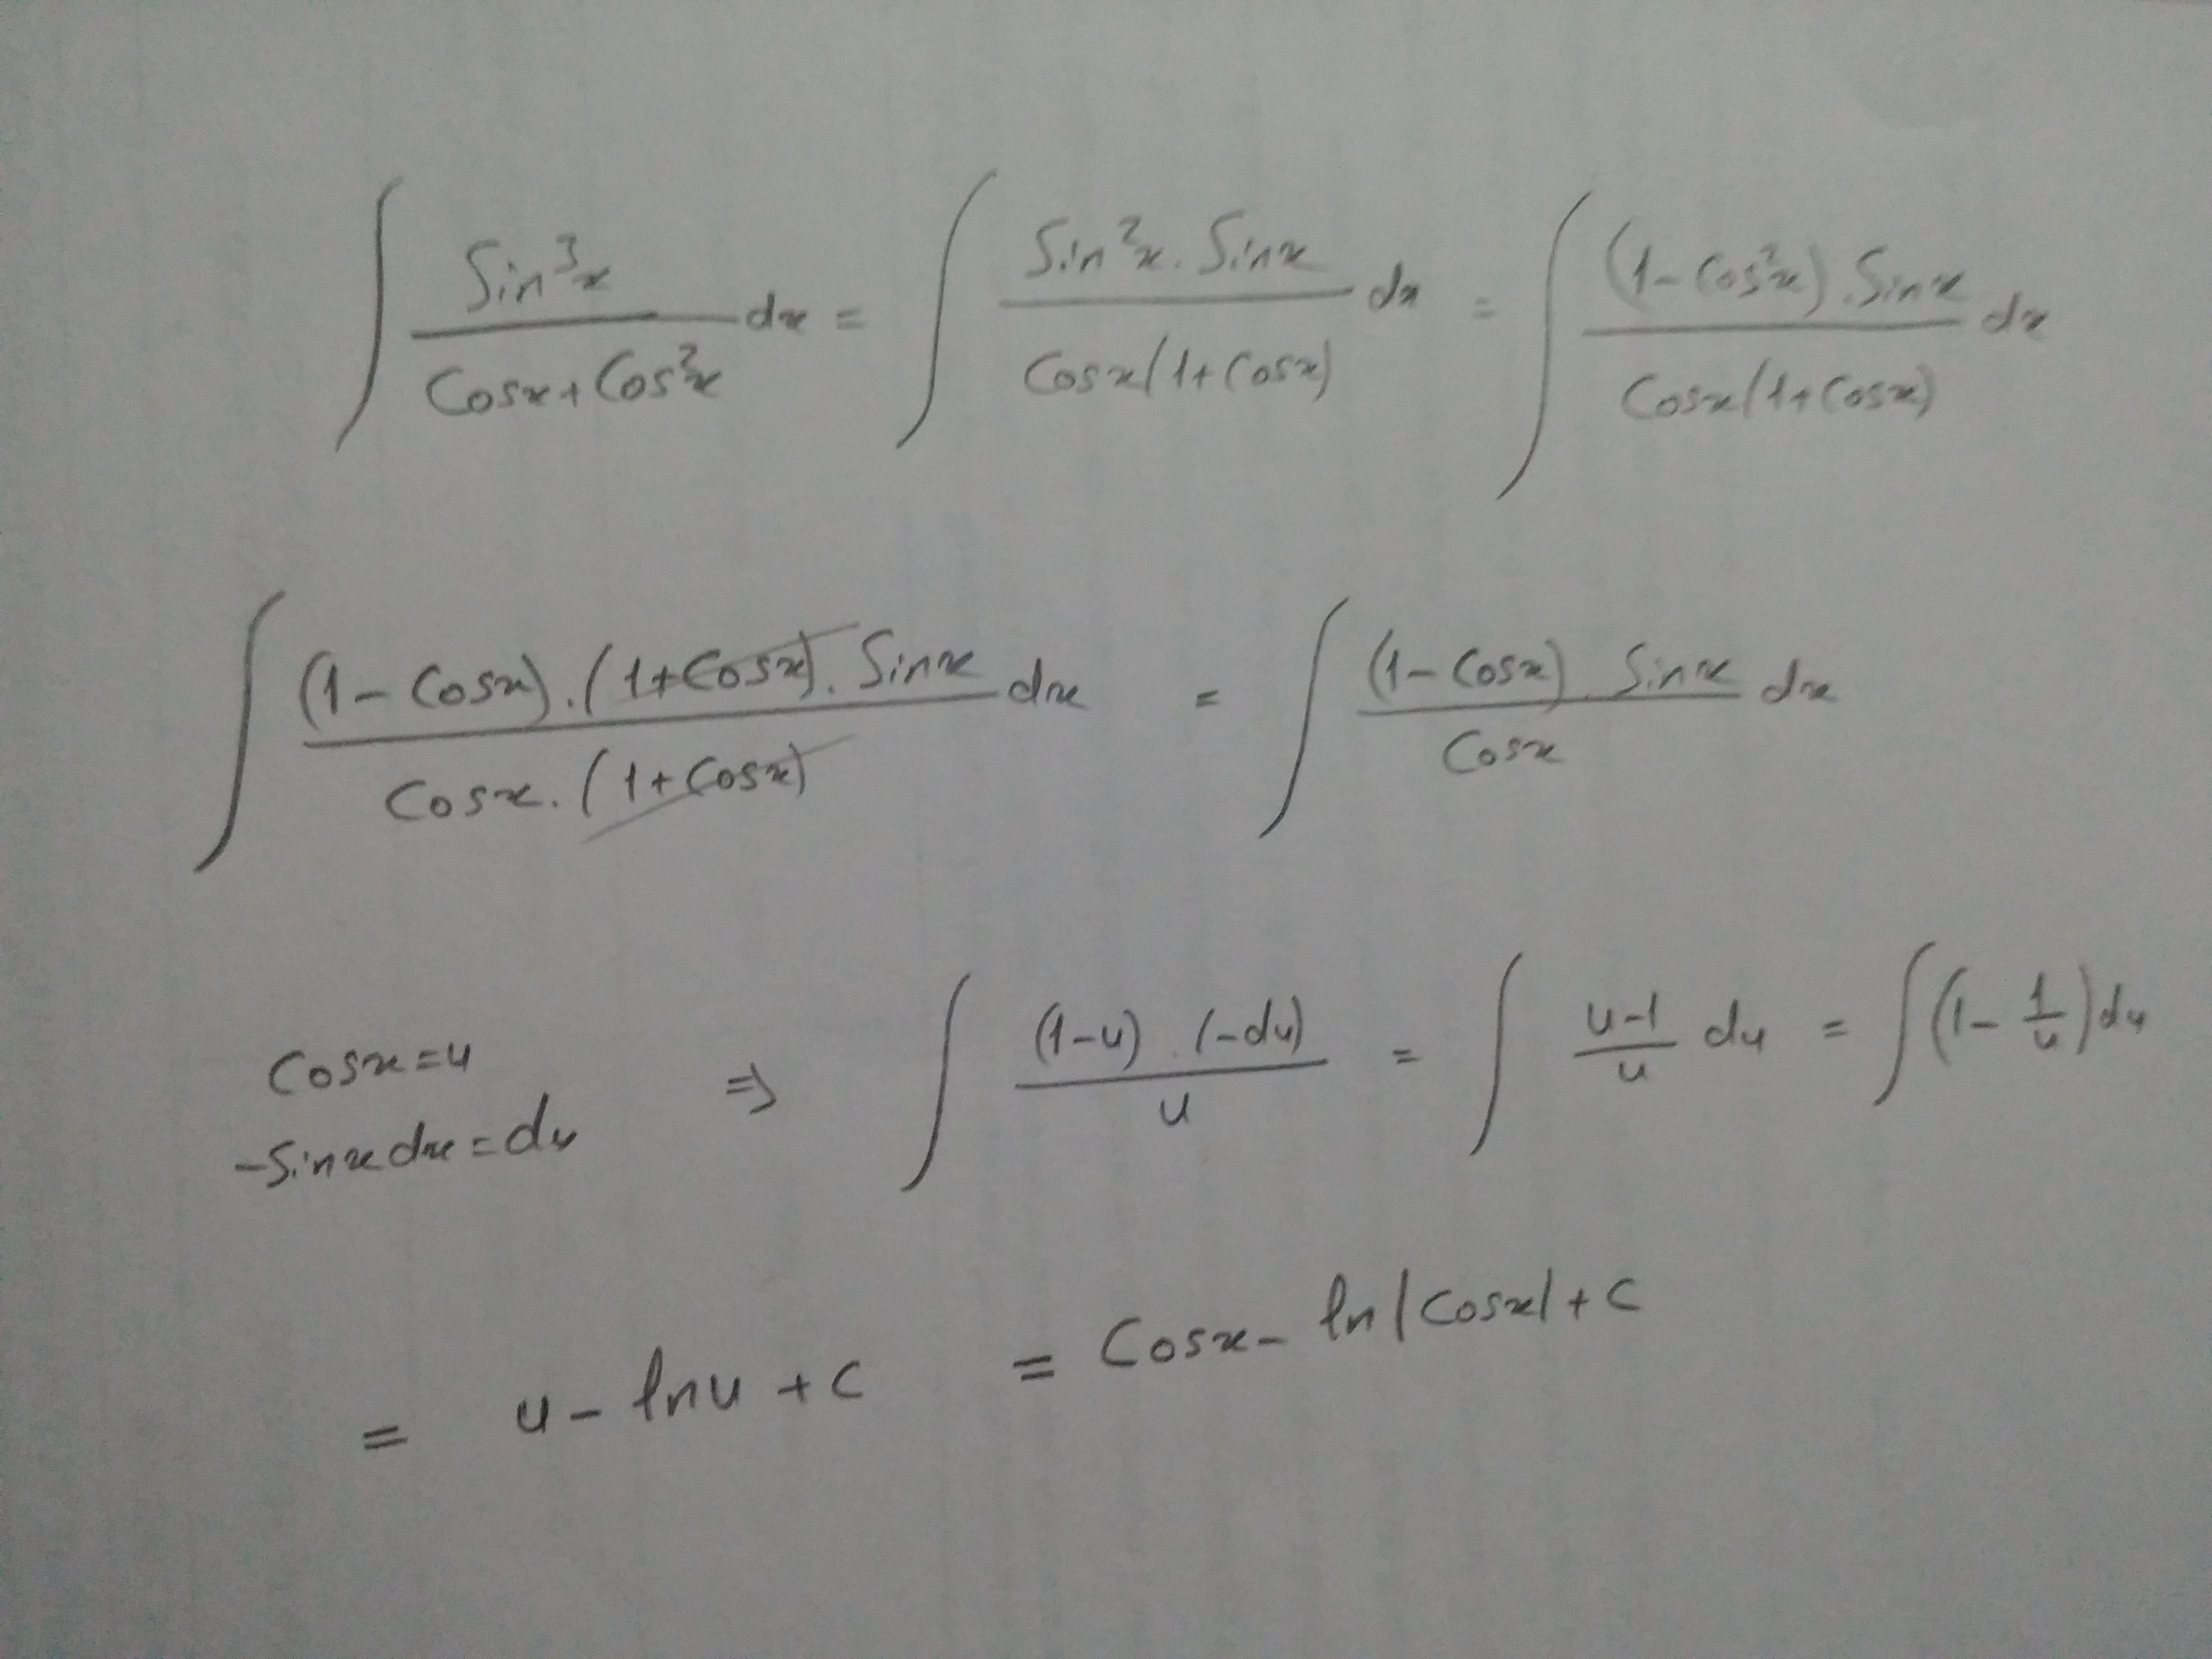 ∫ Sin³x / (Cosx + Cos²x) dx = ∫ Sin²x . Sinx / (Cosx(1+Cosx)) dx = ∫ (1-Cos²x) . Sinx / (Cosx(1+Cosx)) dx
∫ (1-Cosx).(1+Cosx).Sinx / (Cosx.(1+Cosx)) dx = ∫ (1-Cosx).Sinx / Cosx dx
Cosx=u
-Sinxdx=du
⇒ ∫ (1-u).(-du) / u = ∫ (u-1)/u du = ∫(1-1/u)du
= u - lnu + c = Cosx - ln|Cosx| + c